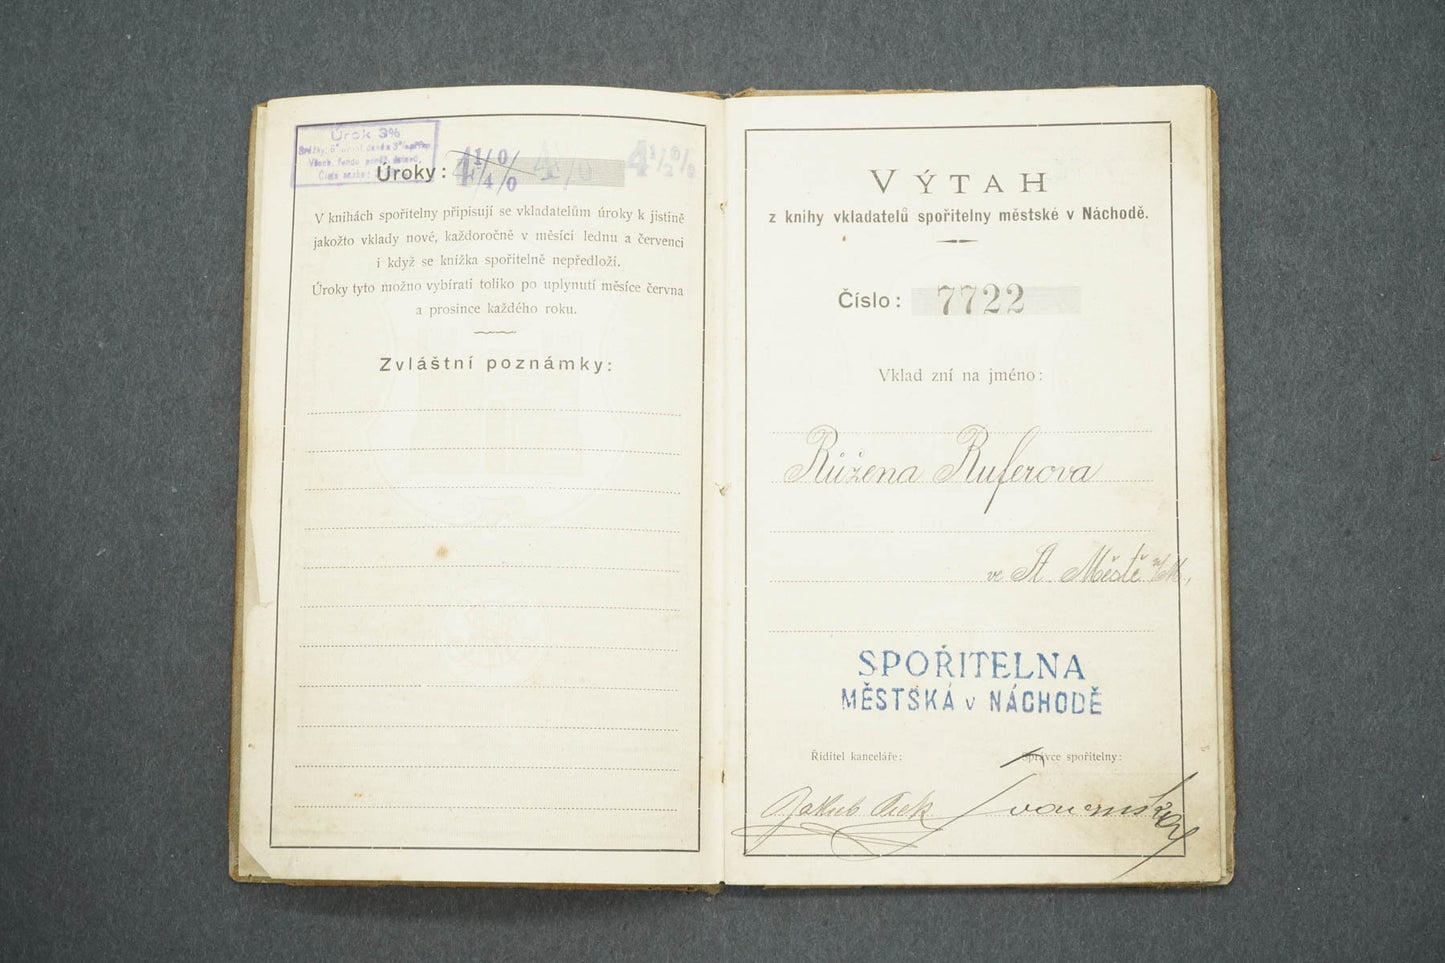 Úrok 3%
Úroky: 4¼% 4% 4½%
V knihách spořitelny připisují se vkladatelům úroky k jistině
jakožto vklady nové, každoročně v měsíci lednu a červenci
i když se knížka spořitelně nepředloží.
Úroky tyto možno vybírati toliko po uplynutí měsíce června
a prosince každého roku.
Zvláštní poznámky:
VÝTAH
z knihy vkladatelů spořitelny městské v Náchodě.
Číslo: 7722
Vklad zní na jméno:
Růžena Ruferova
ve St. Městě n/M.,
SPOŘITELNA
MĚSTSKÁ v NÁCHODĚ
Řiditel kanceláře: Správce spořitelny:
Jakub